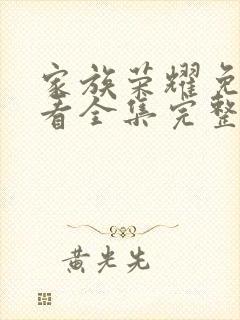 家族荣耀免
看全集完整
黄光先